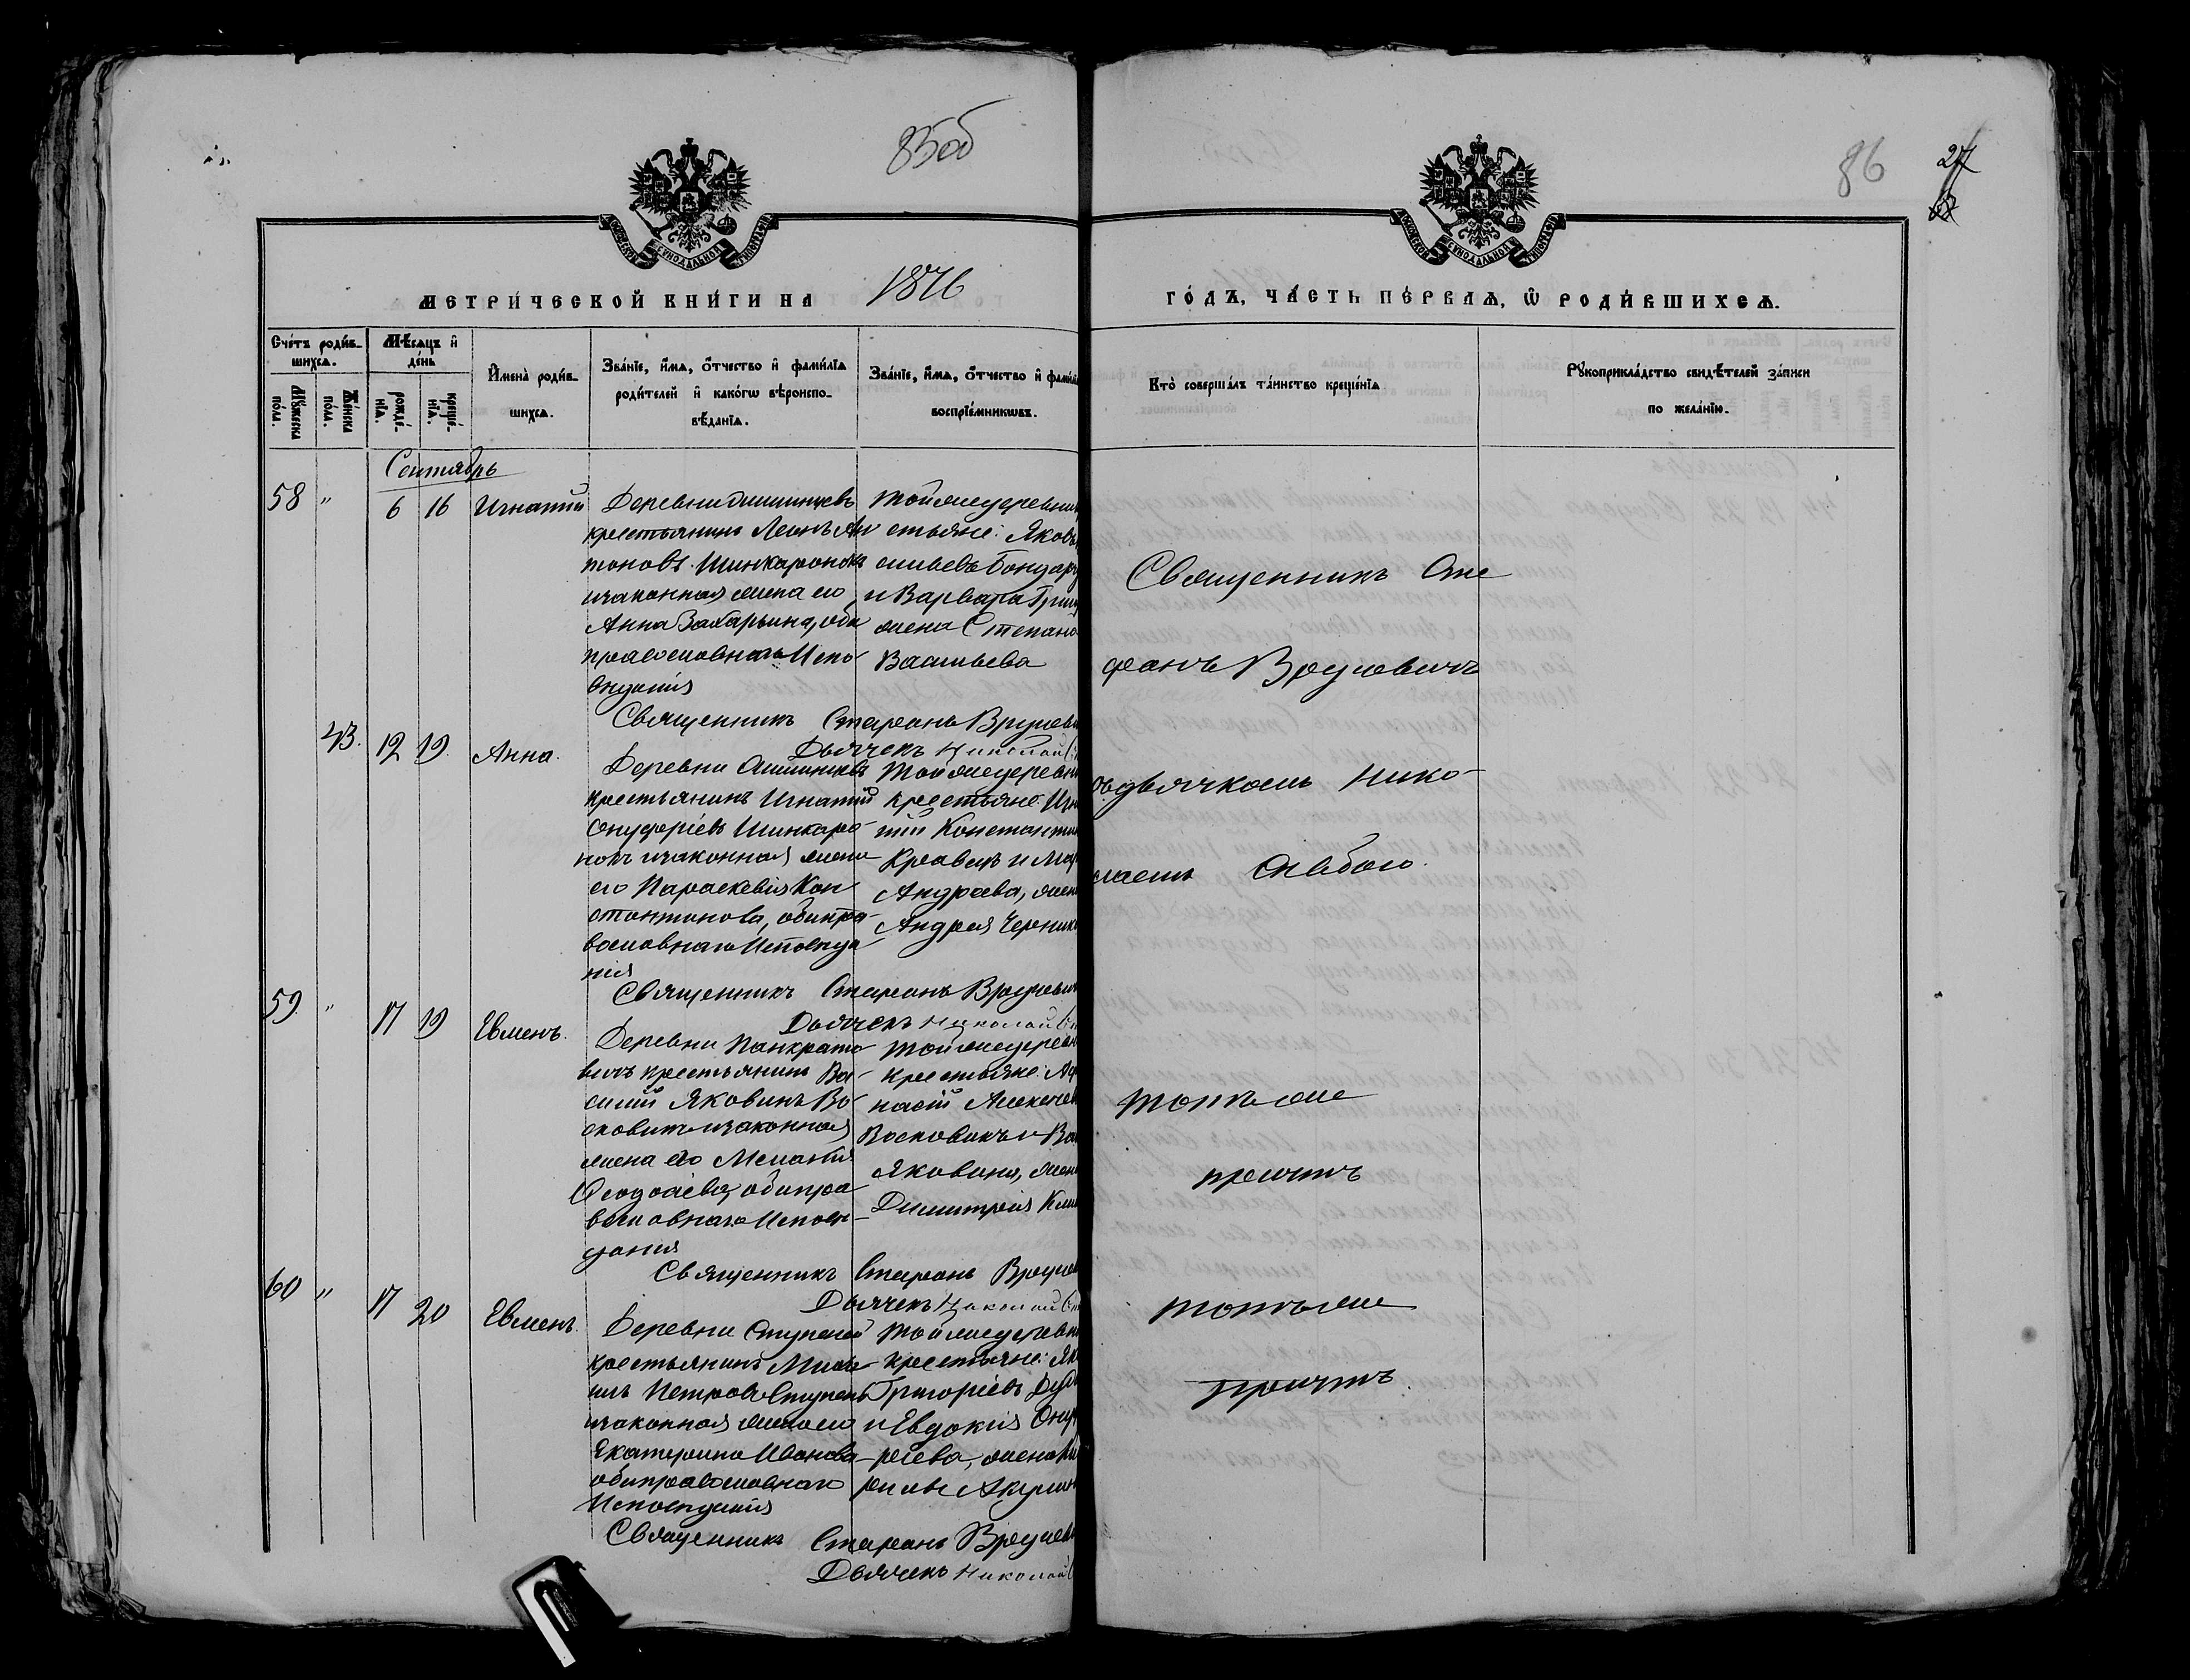 85об
86
27
МЕТРИ́ЧЕСКОЙ КНИ́ГИ НА 1876
ГО́ДЪ, ЧА́СТЬ ПЕ́РВАѦ, Ѡ҆ РОДИ́ВШИХСѦ.
Сче́тъ роди́в-
шихсѧ.
Мꙋ́жеска
по́ла.
Же́нска
по́ла.
Мѣ́сѧцъ и҆
де́нь
рожде́-
нїѧ.
креще́-
нїѧ.
И҆мена̀ роди́в-
шихсѧ.
Зва́нїе, и҆́мѧ, ѻ҆́тчество и҆ фами́лїѧ
роди́телей и҆ како́гѡ вѣроиспо-
вѣ́данїѧ.
Зва́нїе, и҆́мѧ, ѻ҆́тчество и҆ фами́лїѧ
воспрїе́мникѡвъ.
Кто̀ соверша́лъ та́инство креще́нїѧ
Рꙋкоприкла́дство свидѣ́телей за́писи
по жела́нїю.
Сентябрь
58 " 6 16 Игнатій
Деревни
крестьянинъ Леонъ Ан
тоновъ Шинкаронокъ
изаконная жена его
Анна Захарьина, оба
православнаго Испо
вѣданія
Тойжедеревни
стьяне: Яковъ
сильевъ Бондар
и Варвара Григ
жена Степана
Васильева
Священникъ Сте
фанъ Вруцевичъ
ъ дьячкомъ Нико-
лаемъ
Священникъ Стефанъ Вруцеви
Дьячекъ Николай
43. 12 19. Анна.
Деревни
крестьянинъ Игнатій
Онуфріевъ Шинкаро-
нокъ изаконная жена
его Параскевія Кон
стантинова, обапра-
вославнаго Исповѣда
нія
Тойжедеревни
крестьяне: Игн
тій Константин
Кравецъ и Мар
Андреева, жен
Андрея Черник
Священникъ Стефанъ Вруцевич
Дьячекъ Николай
59. " 17 19 Евменъ.
Деревни Панкрато
вичъ крестьянинъ Ва-
силій Яковинъ Во-
сковичъ изаконная
жена его Меланія
Ѳеодосіева, обапра
вославнаго Исповѣ-
данія
Тойжедеревн
крестьяне: Аѳ
насій Алексѣев
Восковичъ и Ва
Яковина, жена
Димитрія Кли
тотъже
причтъ
Священникъ Стефанъ Вруцев
Дьячекъ Николай
60 " 17 20 Евменъ.
Деревни Ступеней
крестьянинъ Миха-
илъ Петровъ Ступень
изаконная женаего
Екатерина Иванова
обаправославнаго
Исповѣданія
Тойжедеревни
крестьяне: Як
Григоріевъ
и Евдокія Онуф
ріева, жена
тотъже
причтъ.
Священникъ Стефанъ Вруцеви
Дьячекъ Николай